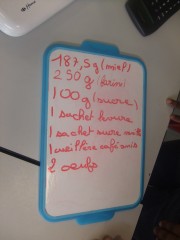 187,5g (miel)
250g (farine)
100g (sucre)
1 sachet levure
1 sachet sucre vanillé
1 cuillère café anis
2 oeufs